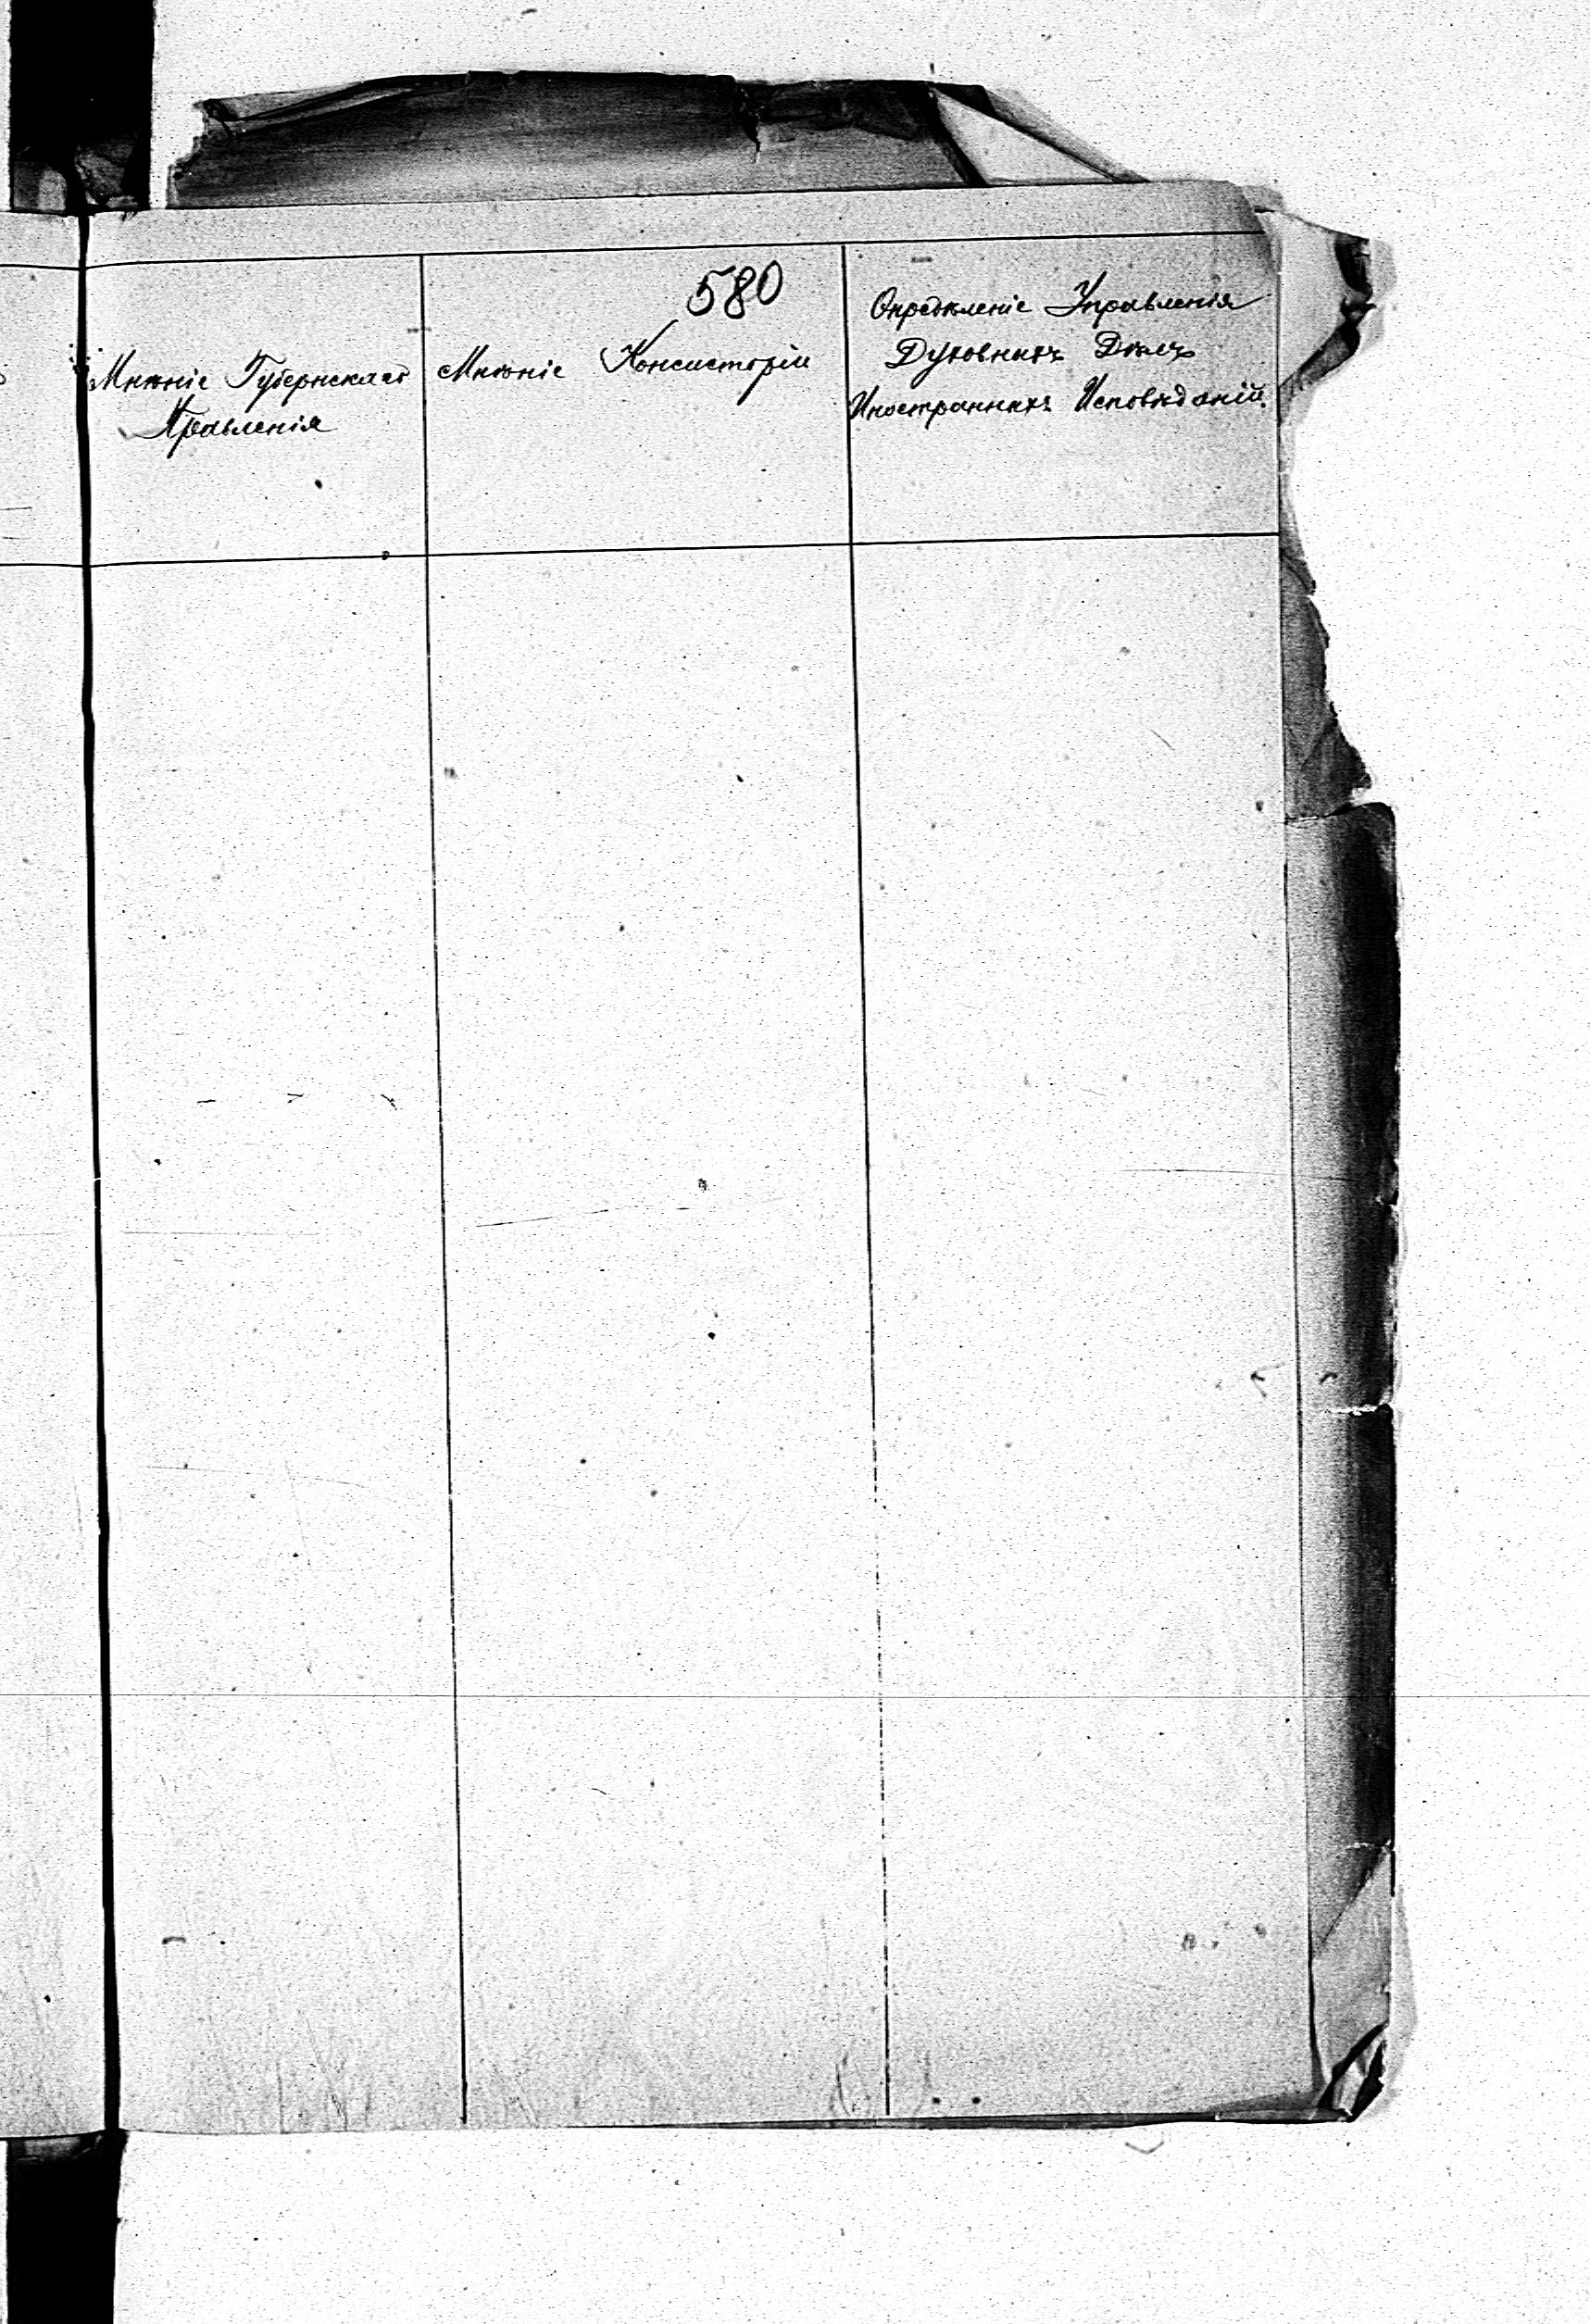 580
Мнѣніе Губернскаго
Правленія
Мнѣніе Консисторіи
Опредѣленіе Управленія
Духовныхъ Дѣлъ
Иностранныхъ Исповѣданій.